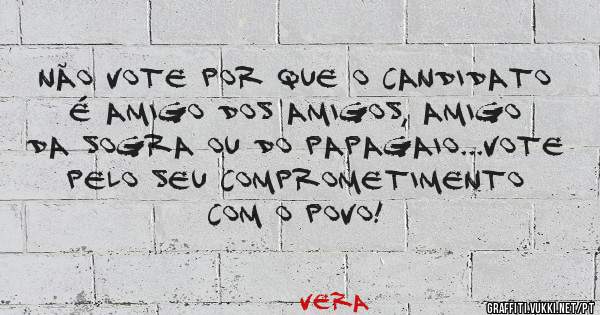 NÃO VOTE POR QUE O CANDIDATO
É AMIGO DOS AMIGOS, AMIGO
DA SOGRA OU DO PAPAGAIO...VOTE
PELO SEU COMPROMETIMENTO
COM O POVO!
VERA
GRAFFITI.VUKKI.NET/PT